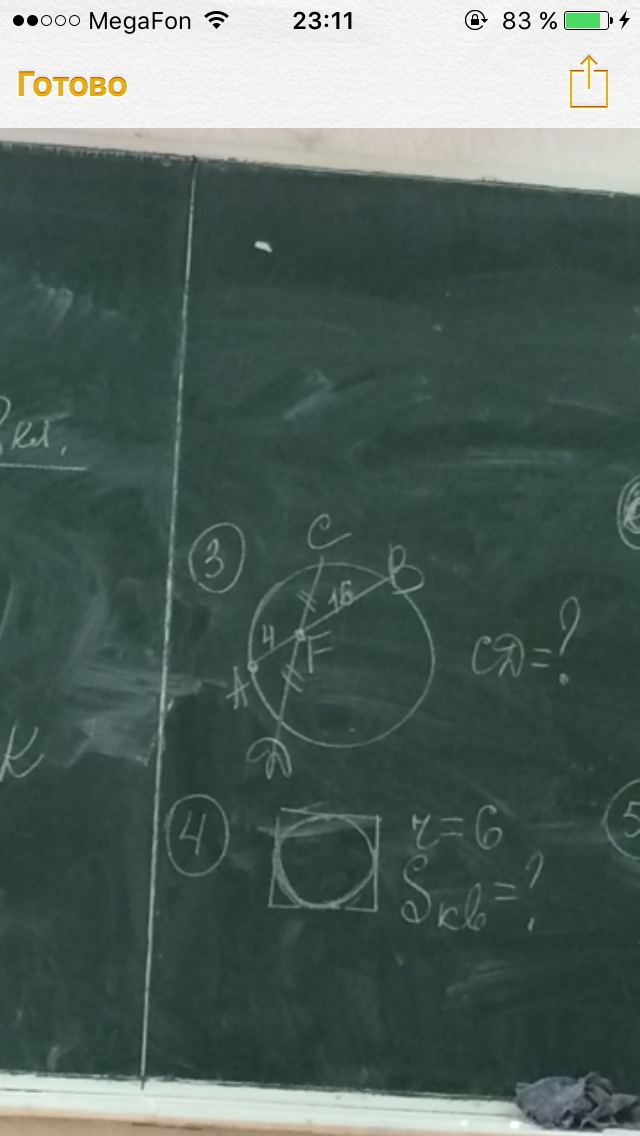 MegaFon 23:11 83 %
Готово
кл.
3
C
B
16
4
F
A
Д
СД=?
К
4
r=6
Sкв=?
5